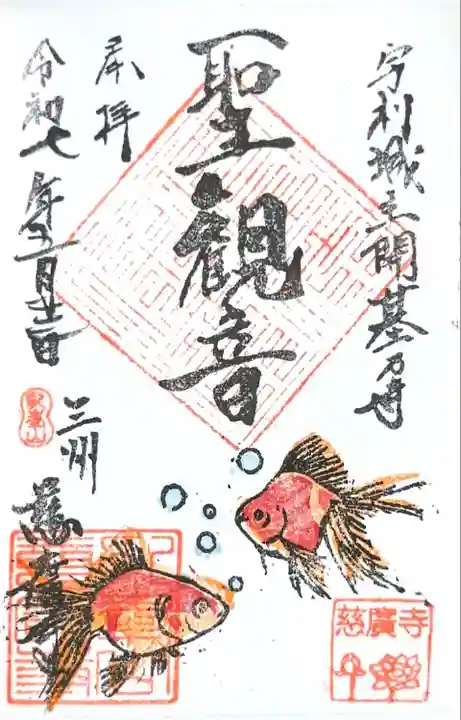 宇利城主開基乃寺
聖観音
奉拝
令和七年五月
三州
慈廣寺
慈廣寺